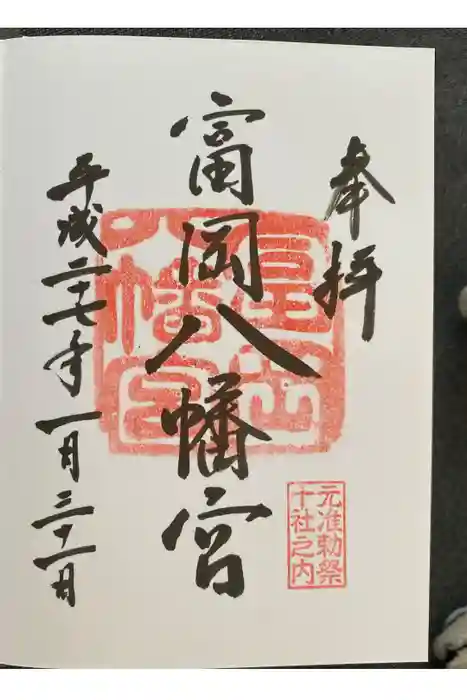 奉拝
富岡八幡宮
平成二十七年一月三十一日
富岡八幡宮
元准勅祭
十社之内